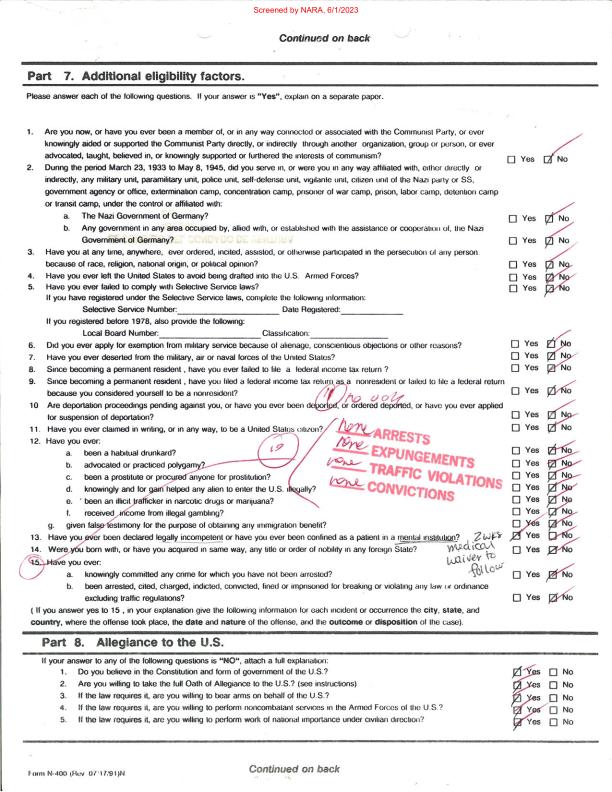 Screened by NARA, 6/1/2023
Continued on back
Part 7. Additional eligibility factors.
Please answer each of the following questions. If your answer is "Yes", explain on a separate paper.
1. Are you now, or have you ever been a member of, or in any way connected or associated with the Communist Party, or ever
knowingly aided or supported the Communist Party directly, or indirectly through another organization, group or person, or ever
advocated, taught, believed in, or knowingly supported or furthered the interests of communism? Yes No
2. During the period March 23, 1933 to May 8, 1945, did you serve in, or were you in any way affiliated with, either directly or
indirectly, any military unit, paramilitary unit, police unit, self-defense unit, vigilante unit, citizen unit of the Nazi party or SS,
government agency or office, extermination camp, concentration camp, prisoner of war camp, prison, labor camp, detention camp
or transit camp, under the control or affiliated with:
a. The Nazi Government of Germany? Yes No
b. Any government in any area occupied by, allied with, or established with the assistance or cooperation of, the Nazi
Government of Germany? Yes No
3. Have you at any time, anywhere, ever ordered, incited, assisted, or otherwise participated in the persecution of any person
because of race, religion, national origin, or political opinion? Yes No
4. Have you ever left the United States to avoid being drafted into the U.S. Armed Forces? Yes No
5. Have you ever failed to comply with Selective Service laws? Yes No
If you have registered under the Selective Service laws, complete the following information:
Selective Service Number: Date Registered:
If you registered before 1978, also provide the following:
Local Board Number: Classification:
6. Did you ever apply for exemption from military service because of alienage, conscientious objections or other reasons? Yes No
7. Have you ever deserted from the military, air or naval forces of the United States? Yes No
8. Since becoming a permanent resident , have you ever failed to file a federal income tax return ? Yes No
9. Since becoming a permanent resident , have you filed a federal income tax return as a nonresident or failed to file a federal return
because you considered yourself to be a nonresident? Yes No
10 Are deportation proceedings pending against you, or have you ever been deported, or ordered deported, or have you ever applied
for suspension of deportation? Yes No
11. Have you ever claimed in writing, or in any way, to be a United States citizen? Yes No
12. Have you ever:
none ARRESTS
none EXPUNGEMENTS
none TRAFFIC VIOLATIONS
none CONVICTIONS
a. been a habitual drunkard? Yes No
b. advocated or practiced polygamy? Yes No
c. been a prostitute or procured anyone for prostitution? Yes No
d. knowingly and for gain helped any alien to enter the U.S. illegally? Yes No
e. been an illicit trafficker in narcotic drugs or marijuana? Yes No
f. received income from illegal gambling? Yes No
g. given false testimony for the purpose of obtaining any immigration benefit? Yes No
13. Have you ever been declared legally incompetent or have you ever been confined as a patient in a mental institution? Yes No
14. Were you born with, or have you acquired in same way, any title or order of nobility in any foreign State? Yes No
medical
waiver to
follow
15. Have you ever:
a. knowingly committed any crime for which you have not been arrested? Yes No
b. been arrested, cited, charged, indicted, convicted, fined or imprisoned for breaking or violating any law or ordinance
excluding traffic regulations? Yes No
( If you answer yes to 15 , in your explanation give the following information for each incident or occurrence the city, state, and
country, where the offense took place, the date and nature of the offense, and the outcome or disposition of the case).
Part 8. Allegiance to the U.S.
If your answer to any of the following questions is "NO", attach a full explanation:
1. Do you believe in the Constitution and form of government of the U.S.? Yes No
2. Are you willing to take the full Oath of Allegiance to the U.S.? (see instructions) Yes No
3. If the law requires it, are you willing to bear arms on behalf of the U.S.? Yes No
4. If the law requires it, are you willing to perform noncombatant services in the Armed Forces of the U.S.? Yes No
5. If the law requires it, are you willing to perform work of national importance under civilian direction? Yes No
Form N-400 (Rev 07/17/91)N
Continued on back